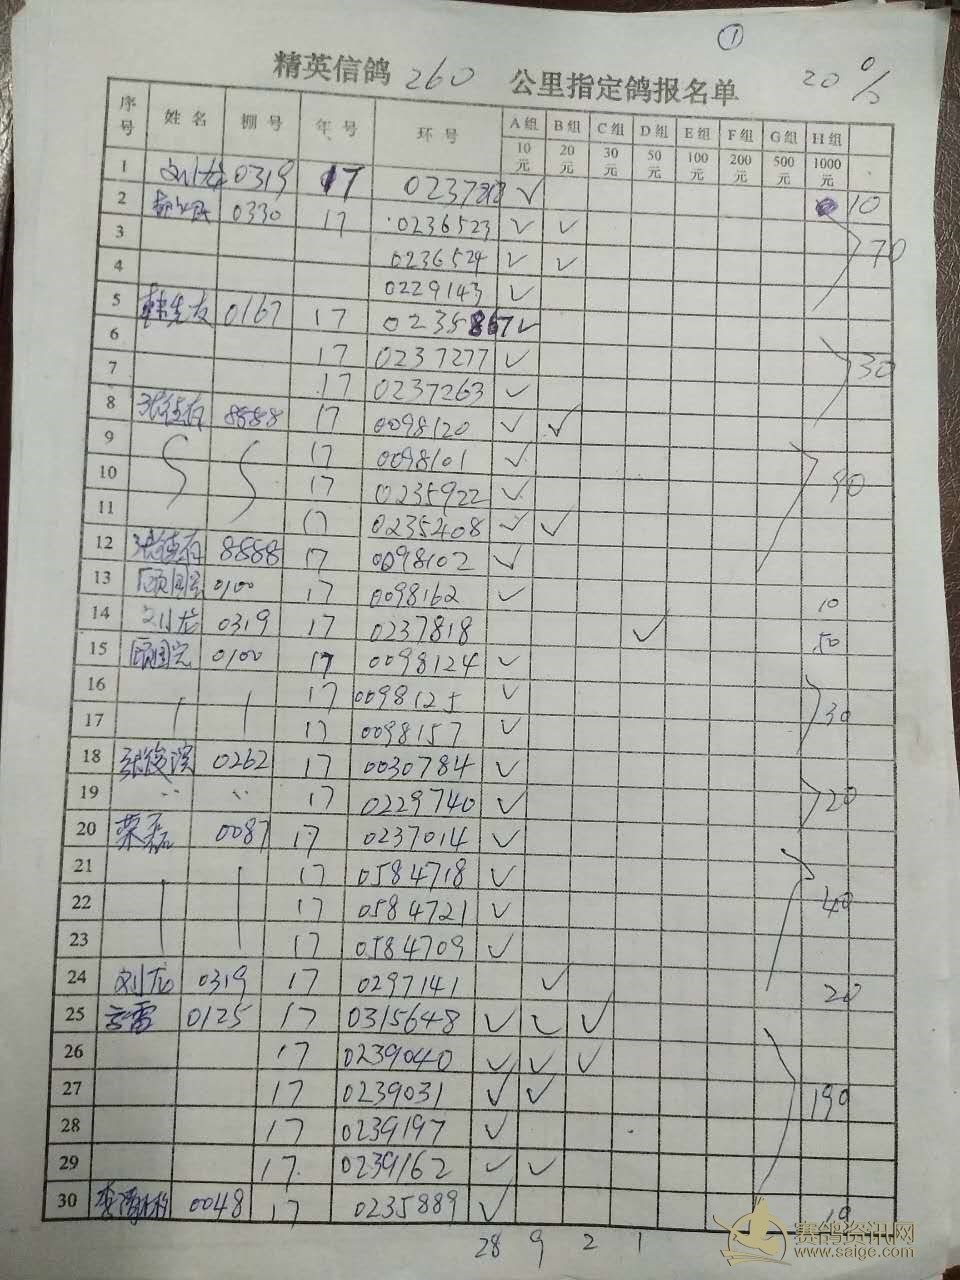 ①
精英信鸽260公里指定鸽报名单 20%
序号 姓名 棚号 年号 环号 A组 B组 C组 D组 E组 F组 G组 H组
10元 20元 30元 50元 100元 200元 500元 1000元
1 刘龙 0319 17 0237212 ✓ 10
2 0330 17 0236523 ✓ ✓
3 0236524 ✓ ✓ 70
4 0229143 ✓
5 韩先友 0167 17 0235867 ✓
6 17 0237277 ✓ 30
7 17 0237263 ✓
8 张德友 8888 17 0098120 ✓ ✓
9 17 0098101 ✓
10 17 0235922 ✓ 90
11 17 0235408 ✓ ✓
12 张德友 8888 17 0098102 ✓
13 顾国宝 0100 17 0098162 ✓ 10
14 刘龙 0319 17 0237818 ✓ 50
15 顾国宝 0100 17 0098124 ✓
16 17 0098125 ✓ 30
17 17 0098157 ✓
18 张俊滨 0262 17 0030784 ✓
19 17 0229740 ✓ 20
20 荣磊 0087 17 0237014 ✓
21 17 0584718 ✓
22 17 0584721 ✓ 40
23 17 0584709 ✓
24 刘龙 0319 17 0297141 ✓ 20
25 0125 17 0315648 ✓ ✓ ✓
26 17 0239040 ✓ ✓ ✓
27 17 0239031 ✓ ✓ 190
28 17 0239197 ✓
29 17 0239162 ✓ ✓
30 0048 17 0235889 ✓ 10
28 9 2 1
赛鸽资讯网
www.saige.com